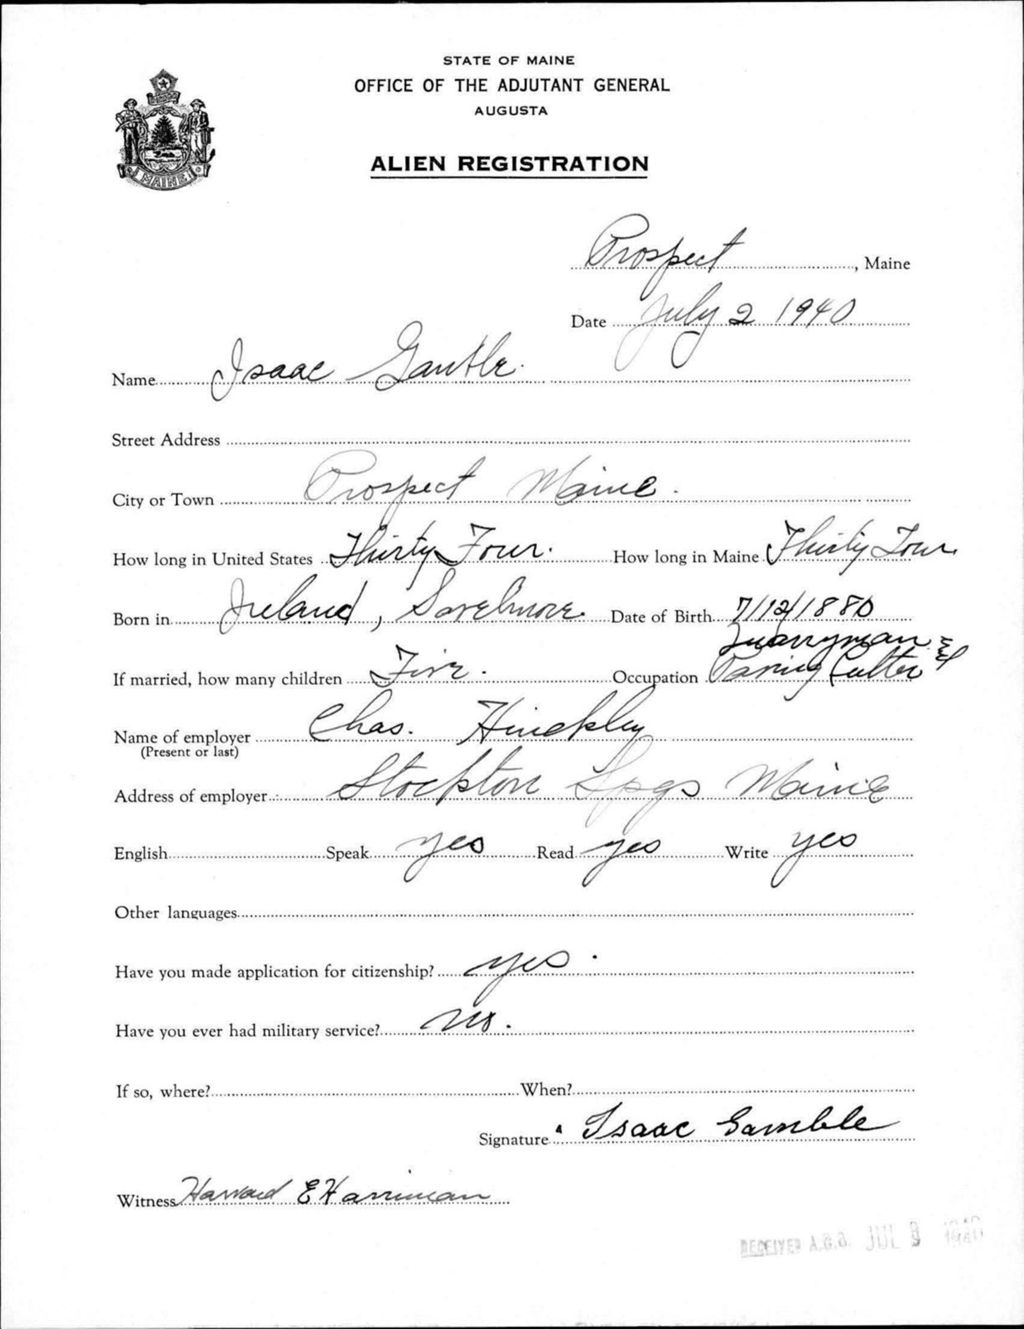 STATE OF MAINE
OFFICE OF THE ADJUTANT GENERAL
AUGUSTA
MAINE
ALIEN REGISTRATION
Prospect, Maine
Date July 2 1940
Name Isaac
Street Address
City or Town Prospect Maine.
How long in United States Thirty Four. How long in Maine Thirty Four
Born in Ireland, Date of Birth 7/12/1880
If married, how many children Five. Occupation Quarryman & Paving Cutter
Name of employer Chas. Hinckley
(Present or last)
Address of employer Stockton Spgs Maine
English Speak yes Read yes Write yes
Other languages
Have you made application for citizenship? yes.
Have you ever had military service? no.
If so, where? When?
Signature Isaac Gamble
Witness Harvard E Harriman
RECEIVED A.G.O. JUL 9 1940